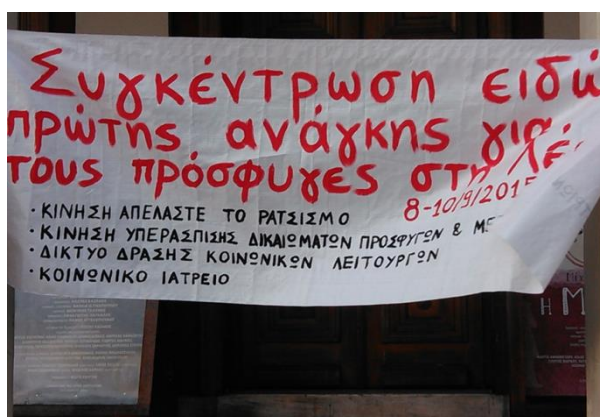 Συγκέντρωση ειδώ
πρώτης ανάγκης για
τους πρόσφυγες στη Λέ
8-10/9/2015
· ΚΙΝΗΣΗ ΑΠΕΛΑΣΤΕ ΤΟ ΡΑΤΣΙΣΜΟ
· ΚΙΝΗΣΗ ΥΠΕΡΑΣΠΙΣΗΣ ΔΙΚΑΙΩΜΑΤΩΝ ΠΡΟΣΦΥΓΩΝ & ΜΕ
· ΔΙΚΤΥΟ ΔΡΑΣΗΣ ΚΟΙΝΩΝΙΚΩΝ ΛΕΙΤΟΥΡΓΩΝ
· ΚΟΙΝΩΝΙΚΟ ΙΑΤΡΕΙΟ